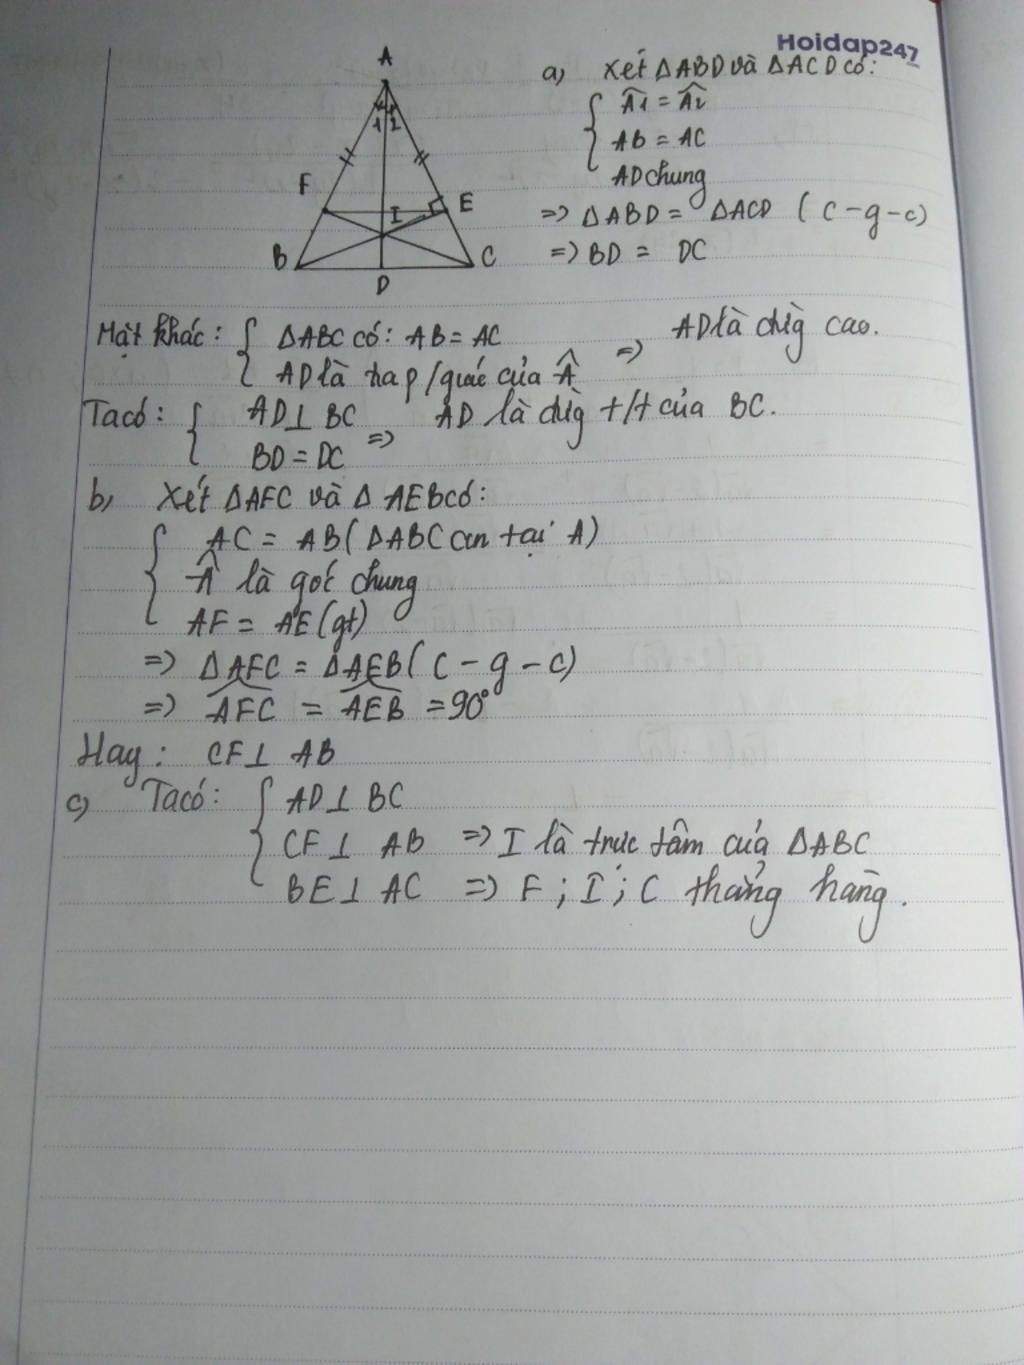 Hoidap247
A
1 2
F
I
E
B
C
D
a) Xét ΔABD và ΔACD có:
{ Â1 = Â2
AB = AC
AD chung
=> ΔABD = ΔACD (c-g-c)
=> BD = DC
Mặt khác: { ΔABC có: AB = AC
AD là tia p/giác của Â
=> AD là đường cao.
Ta có: { AD⊥ BC
BD = DC
=> AD là đường t/t của BC.
b) Xét ΔAFC và Δ AEB có:
{ AC = AB (ΔABC cân tại A)
Â là góc chung
AF = AE (gt)
=> ΔAFC = ΔAEB (c-g-c)
=> AFC = AEB = 90°
Hay: CF⊥ AB
c) Ta có: { AD⊥ BC
CF⊥ AB => I là trực tâm của ΔABC
BE⊥ AC => F; I; C thẳng hàng.